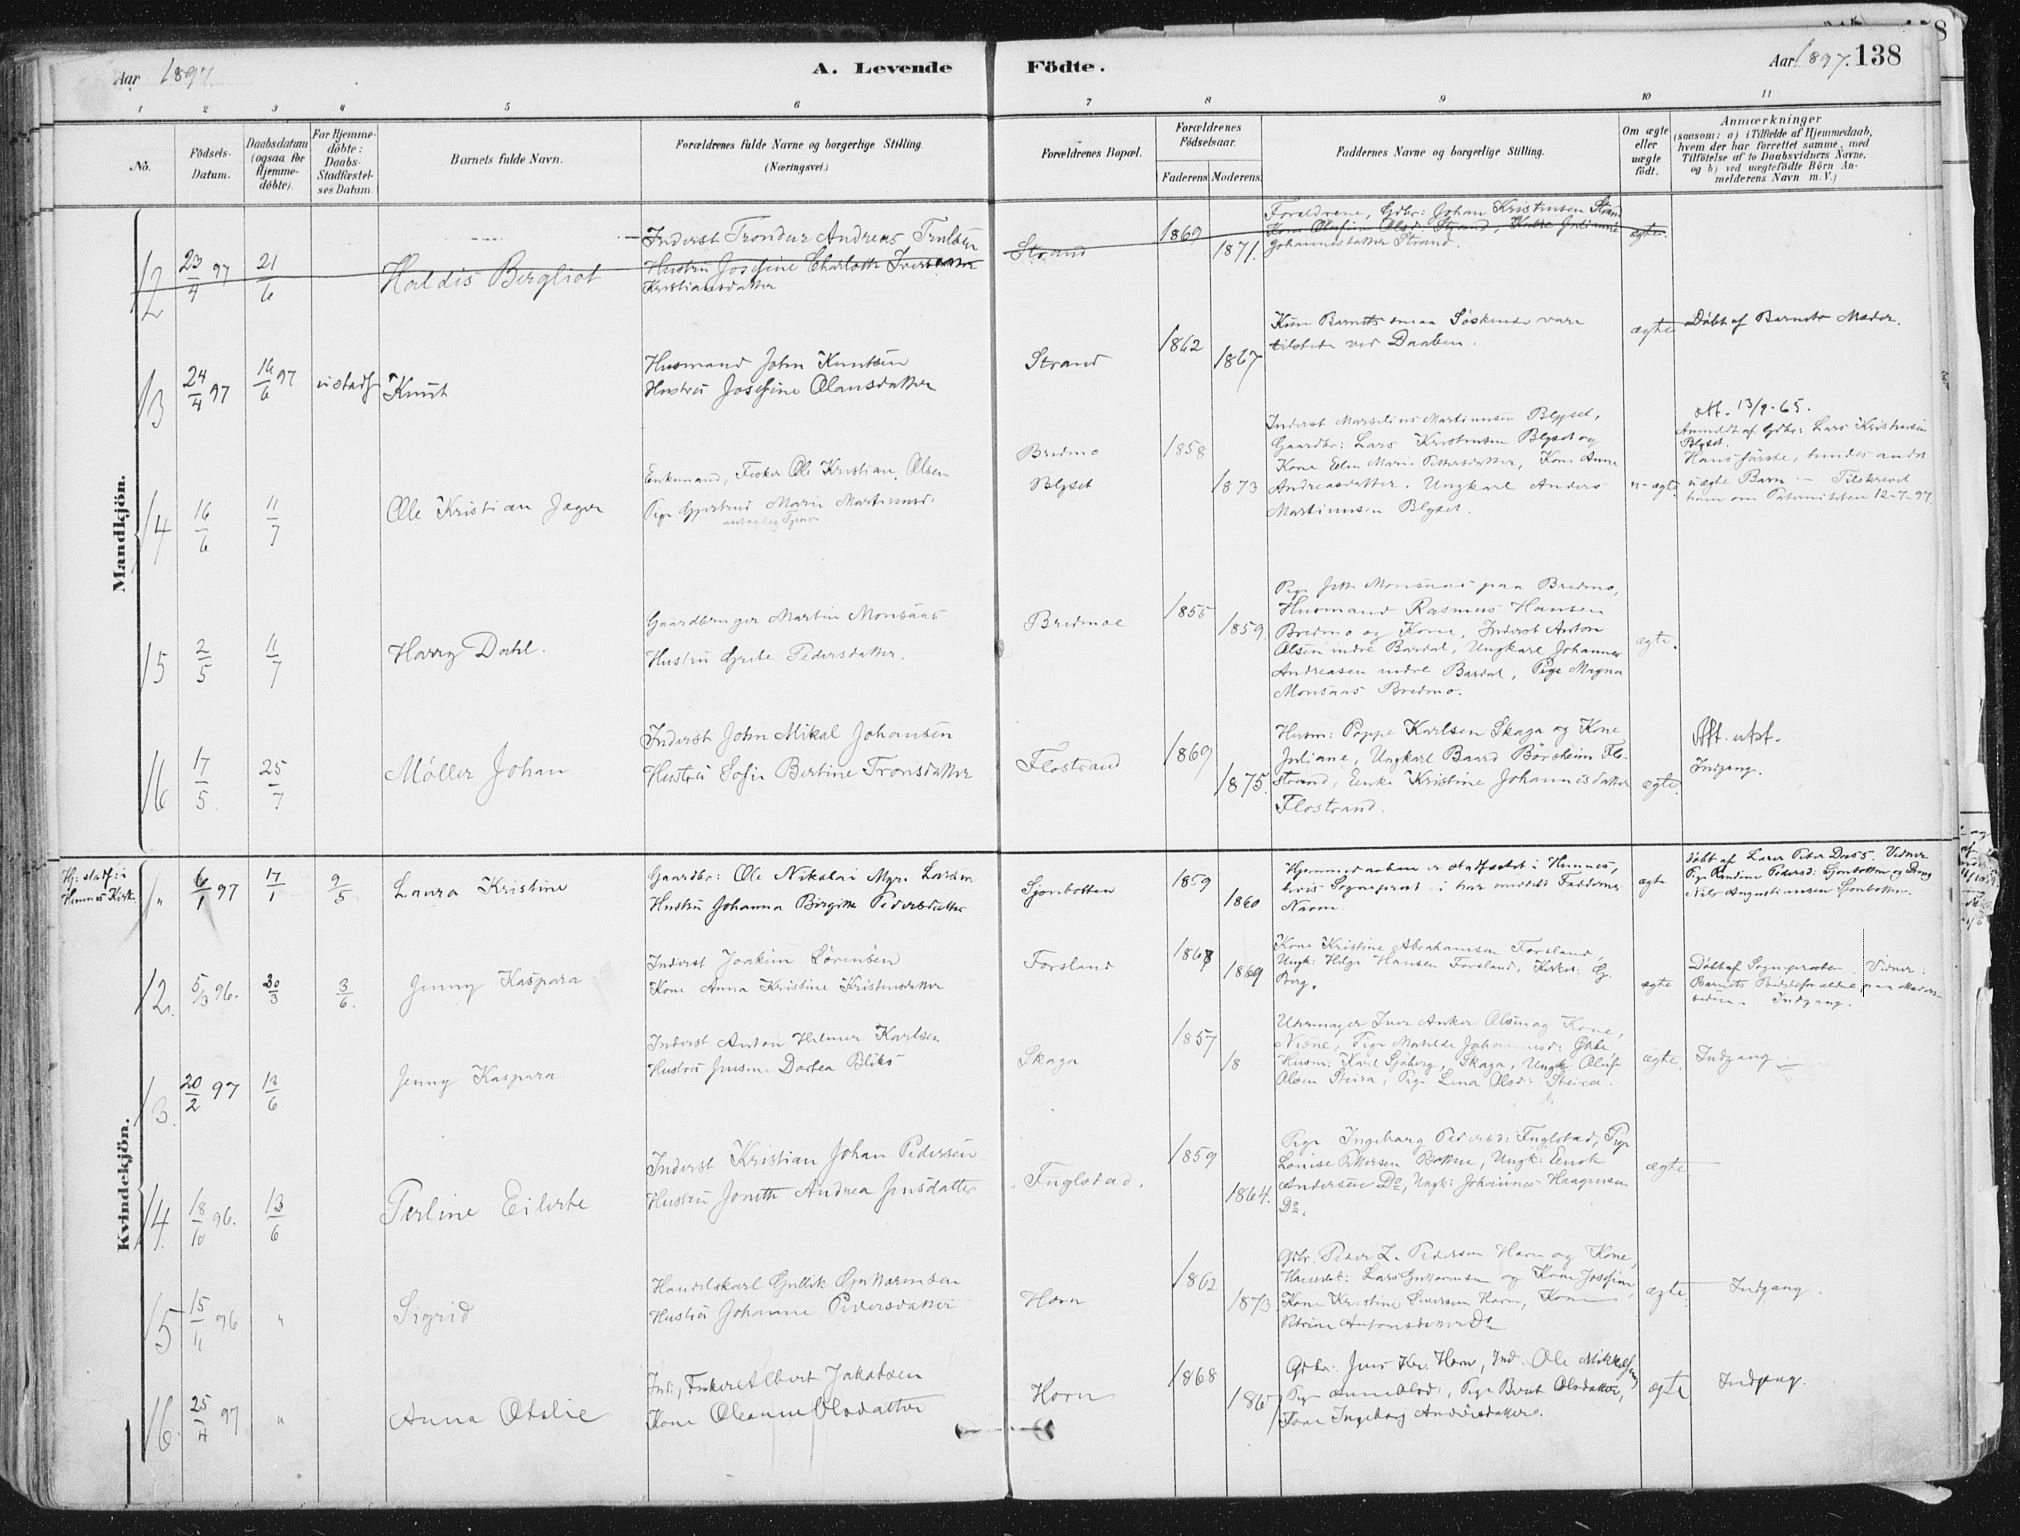 Aar 1897.
A. Levende Födte.
Aar 1897. 138
1 2 3 4 5 6 7 8 9 10 11
No.
Födsels-
Datum.
Daabsdatum
(ogsaa for
Hjemme-
döbte).
For Hjemme-
döbte:
Daabs-
Stadfæstel-
ses Datum.
Barnets fulde Navn.
Forældrenes fulde Navne og borgerlige Stilling.
(Næringsvei.)
Forældrenes Bopæl.
Forældrenes
Födselsaar.
Faderens. Moderens.
Faddernes Navne og borgerlige Stilling.
Om ægte
eller
uægte
födt.
Anmærkninger
(saasom: a) i Tilfælde af Hjemmedaab,
hvem der har forrettet samme, med
Tilföielse af to Daabsvidners Navne,
og b) ved uægtefödte Börn An-
melderens Navn m. V.)
Mandkjön.
12 23/4 97 21/6 Haldis Bergliot
Inderst Trondur Andreas Trulsen
Hustru Josefine Charlotte
Kristiansdatter
Strand 1869 1871.
Forældrene, Gdbr: Johan Kristensen Strand
Kone Olufine Olsd. Strand,
Johannesdatter Strand.
ægte
13 24/4 97 16/6 97 Knut
Husmand John Knutsen
Hustru Josefine Olausdatter
Strand 1862 1867
Kun Barnets smaa Söskende vare
tilstede ved Daaben.
ægte Döbt af Barnets Moder.
14 16/6 11/7 Ole Kristian Jager
Enkemand, Fisker Ole Kristian Olsen
Pige Gjertrud Marie Martinusd.
Bredmo
Blyset
1858 1873
Inderst Marselius Martinusen Blyset,
Gaardbr: Lars Kristensen Blyset og
Kone Ellen Marie Pettersdatter, Kone Anne
Andreasdatter, Ungkarl Anders
Martinusen Blyset.
u-ægte
att. 13/9-65.
Anmeldt af Gdbr: Lars Kristensen
Blyset.
Hans förste, hendes andet
uægte Barn. – Tilskrevet
ham om Paterniteten 12-7-97
15 2/5 11/7 Harry Dahl.
Gaardbruger Martin Monsaas
Hustru Grete Pedersdatter.
Bredmoe 1855 1859.
Pige Jette Monsaas paa Bredmo,
Husmand Rasmus Hansen
Bredmo og Kone, Inderst Anton
Olsen indre Bardal, Ungkarl Johannes
Andreasen indre Bardal, Pige Magna
Monsaas Bredmo.
ægte.
16 17/5 25/7 Møller Johan
Inderst John Mikal Johansen
Hustru Sofie Bertine Tronsdatter
Flostrand 1869 1875.
Husm: Poppe Karlsen Skaga og Kone
Juliane, Ungkarl Baard Börsheim Flo-
strand, Enke Kristine Johannesdatter
Flostrand.
ægte.
Aft. utst.
Indgang.
Kvindekjön.
Hj: stadf: i
Hemnes Kirke
1 6/1 97 17/1 9/5 Laura Kristine
Gaardbr: Ole Nikolai Mgr. Larsen
Hustru Johanna Birgitte Pedersdatter
Sjonbotten 1859 1860
Hjemmedaaben er stadfæstet i Hemnes,
hvis Sogneprest i har meddelt Faddernes
Navne.
ægte
Döbt af Lærer Peter Dass. Vidner
Pige Pedersd: Sjonbotten og Dreng
Nils Augustinusen Sjonbotten.
12. 5/3 96. 30/3 3/6. Jenny Kaspara
Inderst Joakim Sörensen
Kone Anna Kristine Kristensdatter
Forsland 1868 1869
Kone Kristine Abrahamsen Forsland,
Ungk: Helge Hansen Forsland, Kirkes: G.
Berg.
ægte
Döbt af Sognepresten. Vidner:
Barnets Bedsteforældre paa Moders-
siden. Indgang.
13. 20/2 97 13/6 Jenny Kaspara
Inderst Anton Helmer Karlsen
Hustru Jensine Dortea Bliks
Skaga 1857 18
Uhrmager Iver Anker Olsen og Kone,
Pige Matilde Johannesd:
Husm: Karl Sjöberg, Skaga, Ungk. Oluf
Olsen Steira, Pige Lina Olsd: Steira.
ægte. Indgang
14. 18/10 96. 13/6 Perline Eilerte
Inderst Kristian Johan Pedersen
Hustru Jonette Andrea Jensdatter
Fuglstad. 1859 1864.
Pige Ingeborg Pedersd: Fuglstad, Pige
Louise Pettersen Botten, Ungk: Enok
Andersen Do, Ungk: Johannes Haagensen
Do.
ægte
15 15/11 96 " Sigrid
Handelskarl Gullik Guttormsen
Hustru Johanne Pedersdatter
Horn 1862 1873
Gdbr. Peder Z. Pedersen Horn og Kone,
Handelsk: Lars Guttormsen og Kone Josefine,
Kone Kristine Siversen Horn, Kone
Petrine Antonsdatter Do
ægte. Indgang.
16 25/4 97 " Anna Otelie
Ind:, Fisker Albert Jakobsen
Kone Oleanne Olsdatter
Horn 1868 1867
Gdbr. Jens Horn, Ind. Ole Mikkelsen,
Pige Anne Olsd:, Pige Berit Olsdatter,
Kone Ingeborg Andersdatter.
ægte Indgang.